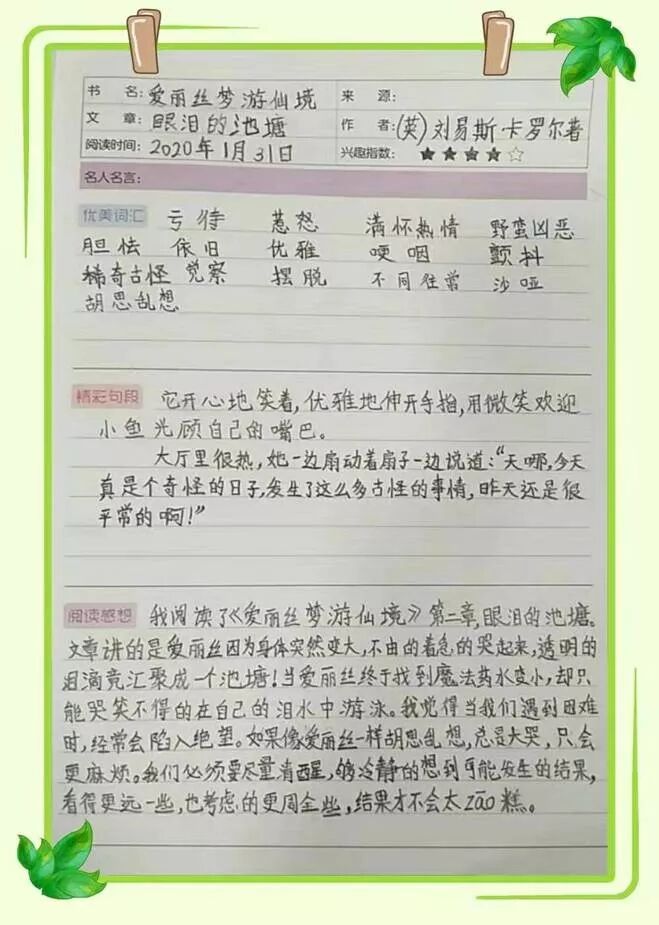 书 名：爱丽丝梦游仙境 来 源：
文 章：眼泪的池塘 作 者：(英)刘易斯·卡罗尔著
阅读时间：2020年1月31日 兴趣指数：★★★★☆
名人名言：
优美词汇 亏待 惹怒 满怀热情 野蛮凶恶
胆怯 依旧 优雅 哽咽 颤抖
稀奇古怪 觉察 摆脱 不同往常 沙哑
胡思乱想
精彩句段 它开心地笑着,优雅地伸开手指,用微笑欢迎
小鱼光顾自己的嘴巴。
大厅里很热,她一边扇动着扇子一边说道:“天哪,今天
真是个奇怪的日子,发生了这么多古怪的事情,昨天还是很
平常的啊!”
阅读感想 我阅读了《爱丽丝梦游仙境》第二章,眼泪的池塘。
文章讲的是爱丽丝因为身体突然变大,不由的着急的哭起来,透明的
泪滴竟汇聚成一个池塘!当爱丽丝终于找到魔法药水变小,却只
能哭笑不得的在自己的泪水中游泳。我觉得当我们遇到困难
时,经常会陷入绝望。如果像爱丽丝一样胡思乱想,总是大哭,只会
更麻烦。我们必须要尽量清醒,够冷静的想到可能发生的结果,
看得更远一些,也考虑的更周全些,结果才不会太zāo糕。